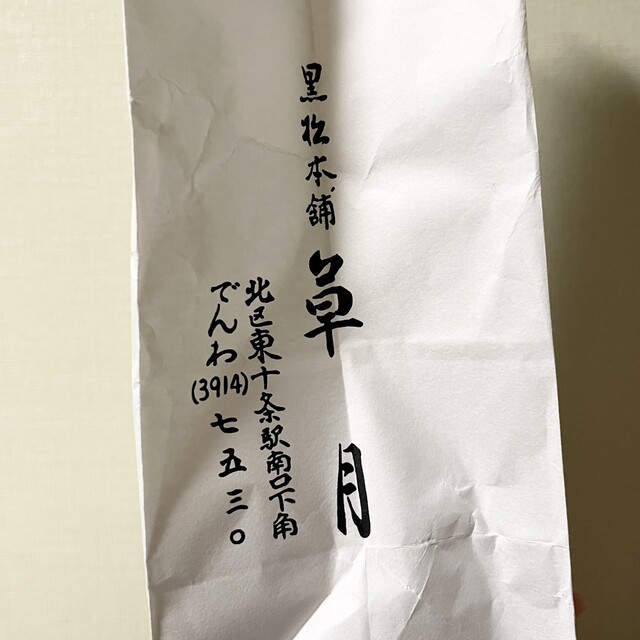 黒松本舗
草月
北区東十条駅南口下角
でんわ(3914)七五三〇